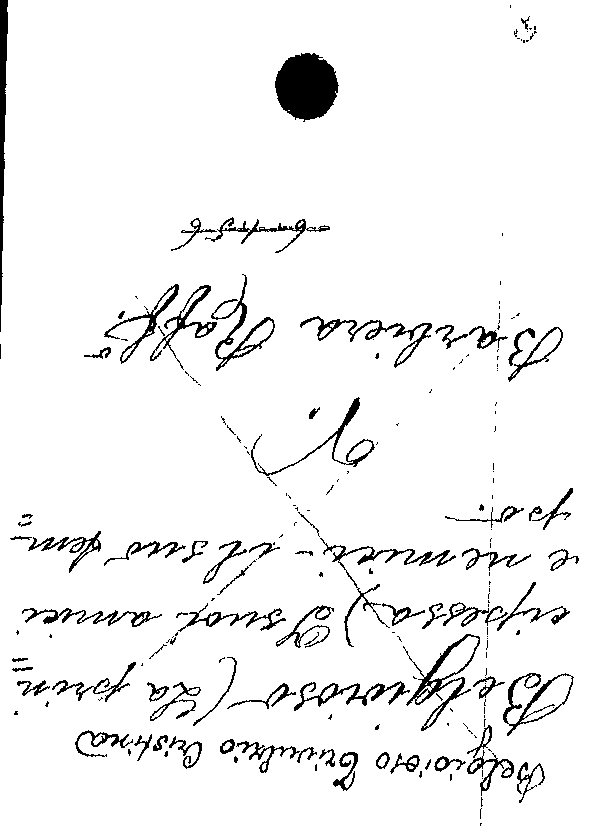 Belgioioso Trivulzio Cristina
Belgioioso (La prin=
cipessa) I suoi amici
e nemici - il suo tem=
po.
V.
Barbiera Raff.º